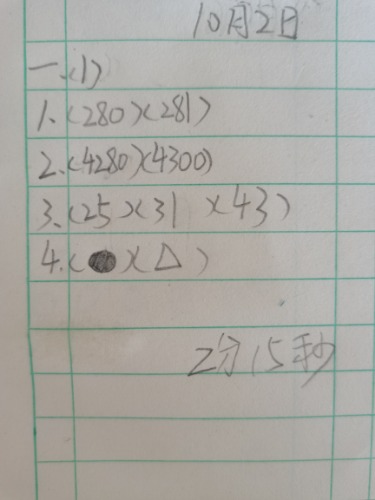 10月2日
一、(1)
1.(280)(281)
2.(4280)(4300)
3.(25)(31)(43)
4.(●)(△)
2分15秒